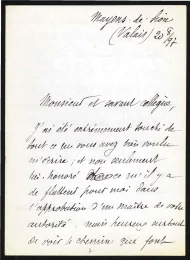 Mayens de Sion
(Valais) 20/8/97
Monsieur et savant collègue,
J'ai été extrêmement touché de
tout ce que vous avez bien voulu
m'écrire ; et non seulement
très honoré de ce qu'il y a
de flatteur pour moi dans
l'approbation d'un maître de votre
autorité ; mais heureux surtout
de voir le chemin que font